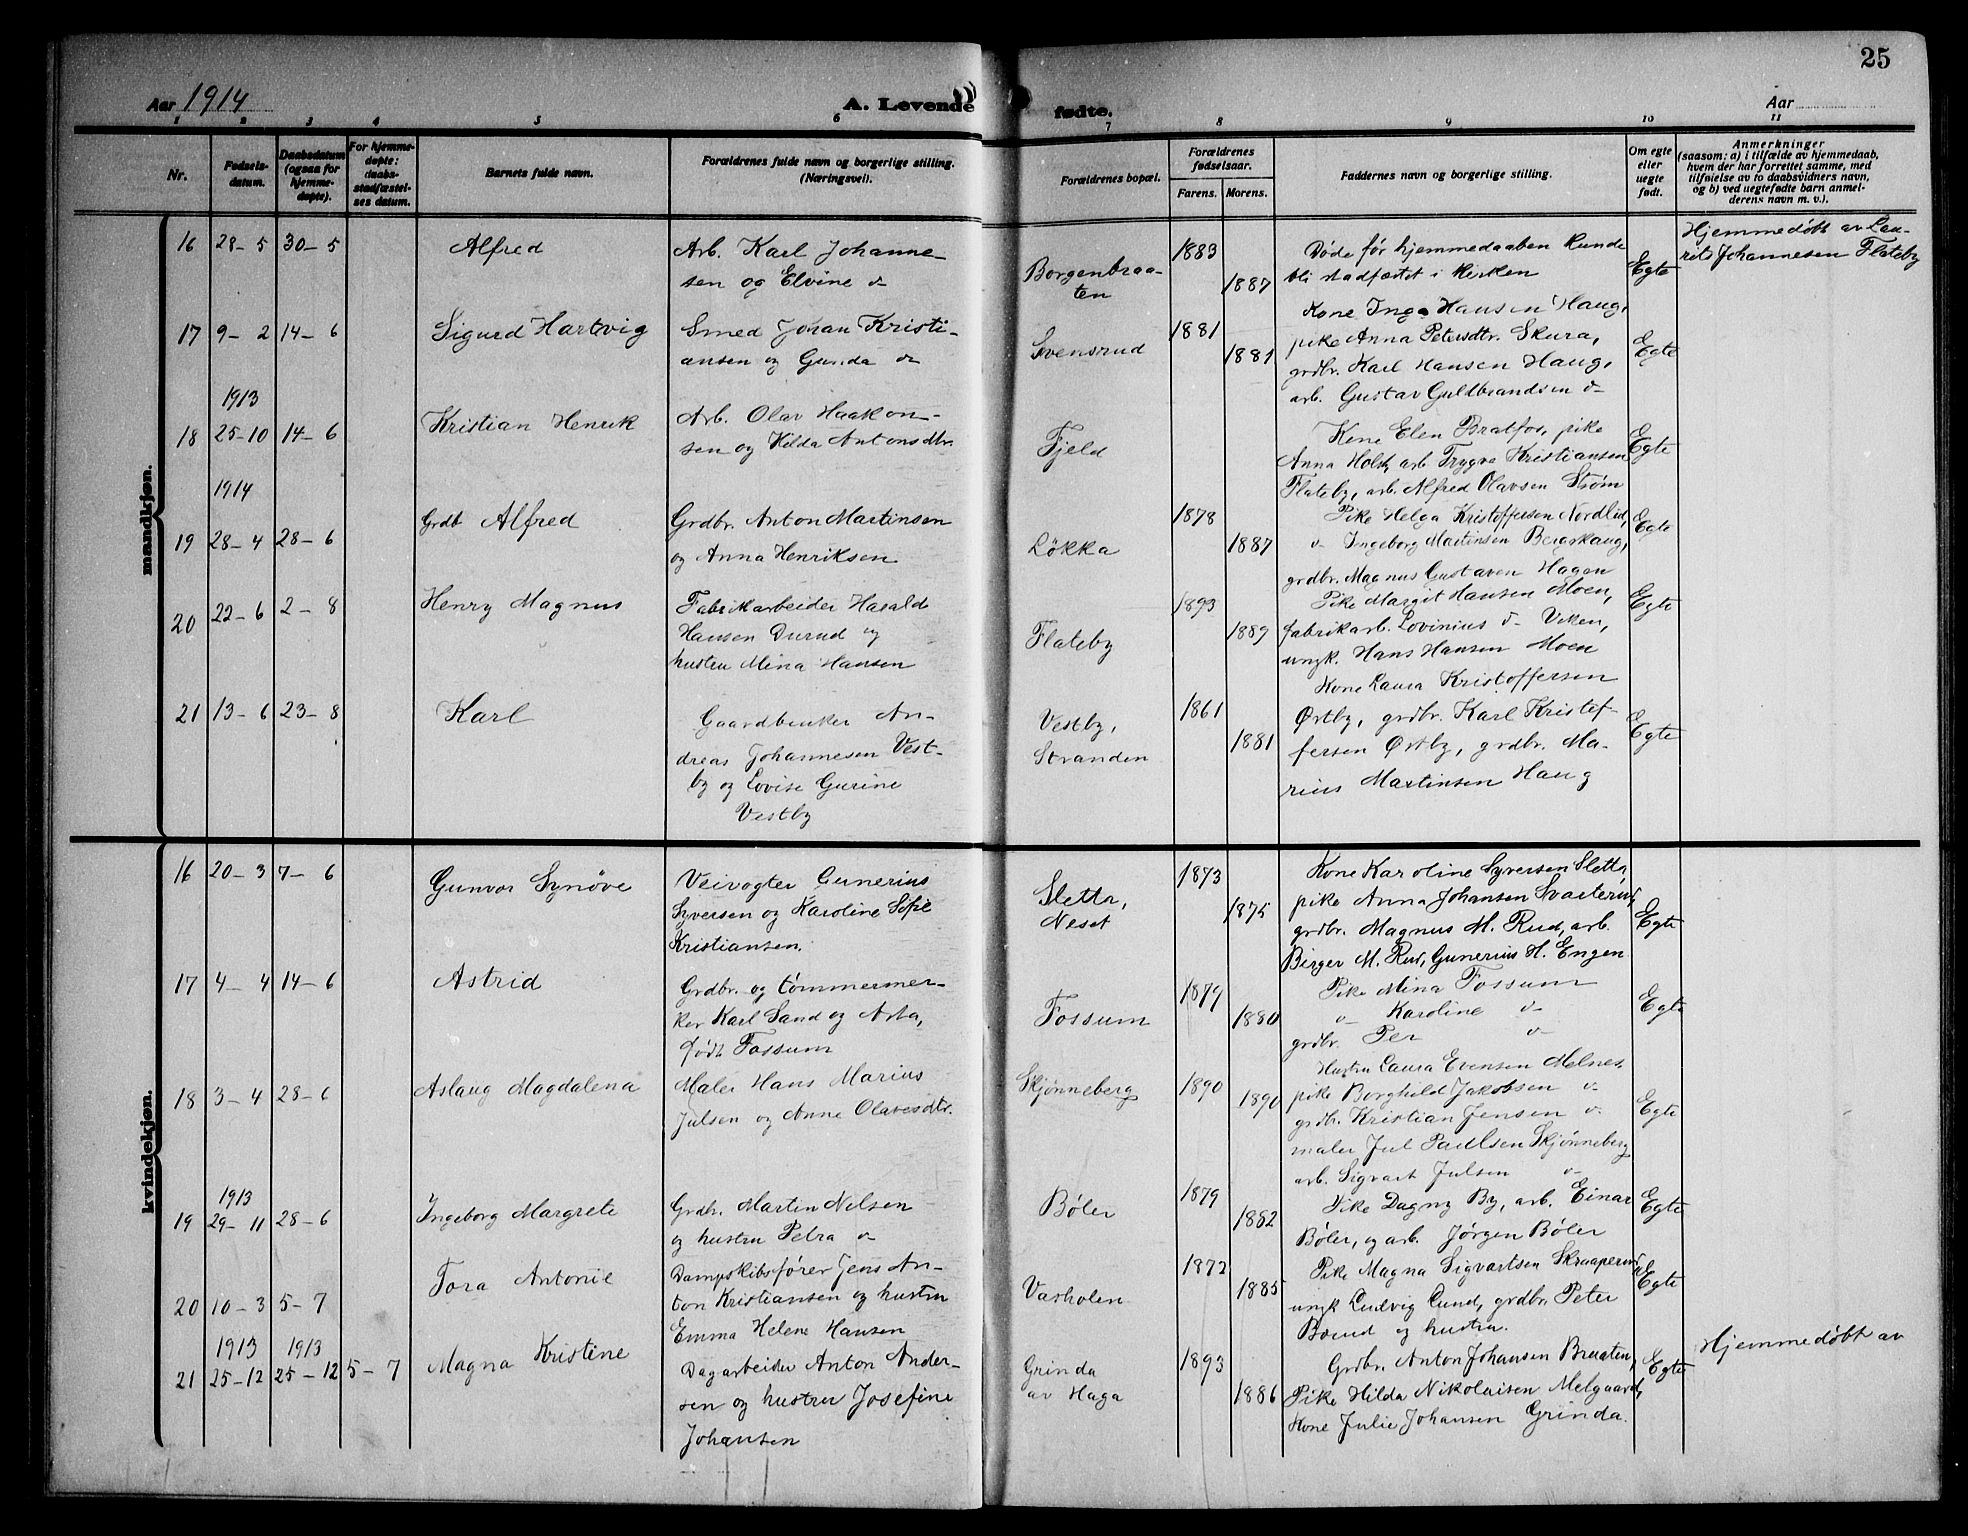 25
Aar 1914
A. Levende fødte.
Aar
1 2 3 4 5 6 7 8 9 10 11
Nr.
Fødselsdatum.
Daabsdatum (ogsaa for hjemmedøpte).
For hjemmedøpte: daabsstadfæstelses datum.
Barnets fulde navn.
Forældrenes fulde navn og borgerlige stilling. (Næringsvei).
Forældrenes bopæl.
Forældrenes fødselsaar.
Farens. Morens.
Faddernes navn og borgerlige stilling.
Om egte eller uegte født.
Anmerkninger
(saasom: a) i tilfælde av hjemmedaab, hvem der har forrettet samme, med tilføielse av to daabsvidners navn, og b) ved uegtefødte barn anmelderens navn m. v.).
mandkjøn.
16 28-5 30-5 Alfred
Arb. Karl Johanne-
sen og Elvine d-
Borgenbraa-
ten
1883 1887
Døde før hjemmedaaben kunde
bli stadfæstet i kirken
Egte
Hjemmedøbt av Lau-
rits Johannesen Flateby
17 9-2 14-6 Sigurd Hartvig
Smed Johan Kristi-
ansen og Gunda d-
Svensrud
1881 1881
Kone Inga Hansen Haug,
pike Anna Petersdtr. Skura,
grdbr. Karl Hansen Haug,
arb. Gustav Guldbrandsen d-
Egte
1913
18 25-10 14-6 Kristian Henrik
Arb. Olav Haakon-
sen og Hilda Antonsdtr.
Fjeld
Kone Elen Bratfos, pike
Anna Holst, arb. Trygve Kristiansen
Flateby, arb. Alfred Olavsen Strøm
Egte
1914
19 28-4 28-6 Grdb Alfred
Grdbr. Anton Martinsen
og Anna Henriksen
Løkka
1878 1887
Pike Helga Kristoffersen Nordlid,
d- Ingeborg Martinsen Bergskaug,
grdbr. Magnus Gustaven Hagen
Egte
20 22-6 2-8 Henry Magnus
Fabrikarbeider Harald
Hansen Durud og
hustru Mina Hansen
Flateby
1893 1889
Pike Margit Hansen Moen,
fabrikarb. Lovinius d- Viken,
ungk. Hans Hansen Moen
Egte
21 13-6 23-8 Karl
Gaardbruker An-
dreas Johannesen Vest-
by og Lovise Gurine
Vestby
Vestby,
Stranden
1861 1881
Kone Laura Kristoffersen
Ørtby, grdbr. Karl Kristof-
fersen Ørtby, grdbr. Ma-
rius Martinsen Haug
Egte
kvindekjøn.
16 20-3 7-6 Gunvor Synøve
Veivogter Gunerius
Syversen og Karoline Sofie
Kristiansen.
Sletta,
Neset
1873 1875
Kone Karoline Syversen Sletta,
pike Anna Johansen Svarterud,
grdbr. Magnus M. Rud, arb.
Birger M. Rud, Gunerius H. Engen
Egte
17 4-4 14-6 Astrid
Grdbr. og tømmermer-
ker Karl Sand og Asta,
født Fossum
Fossum
1879 1880
Pike Mina Fossum
d- Karoline d-
grdbr. Per d-
Egte
18 3-4 28-6 Aslaug Magdalena
Maler Hans Marius
Julsen og Anne Olavesdtr.
Skjønneberg
1890 1890
Hustru Laura Evensen Melnes,
pike Borghild Jakobsen d-
grdbr. Kristian Jensen d-
maler Jul Paulsen Skjønneberg
arb. Sigvart Julsen d-
Egte
1913
19 29-11 28-6 Ingeborg Margrete
Grdbr. Martin Nilsen
og hustru Petra d-
Bøler
1879 1882
Pike Dagny By, arb. Einar
Bøler, og arb. Jørgen Bøler
Egte
20 10-3 5-7 Tora Antonie
Dampskibsfører Jens An-
ton Kristiansen og hustru
Emma Helene Hansen
Vasholen
1872 1885
Pike Magna Sigvartsen Skraaperud,
ungk Ludvig Lund, grdbr. Peter
og hustru.
Egte
1913 1913
21 25-12 25-12 5-7 Magna Kristine
Dagarbeider Anton Ander-
sen og hustru Josefine
Johansen
Grinda
av Haga
1893 1886
Grdbr. Anton Johansen Braaten,
Pike Hilda Nikolaisen Melgaard,
Kone Julie Johansen Grinda.
Egte
Hjemmedøbt av